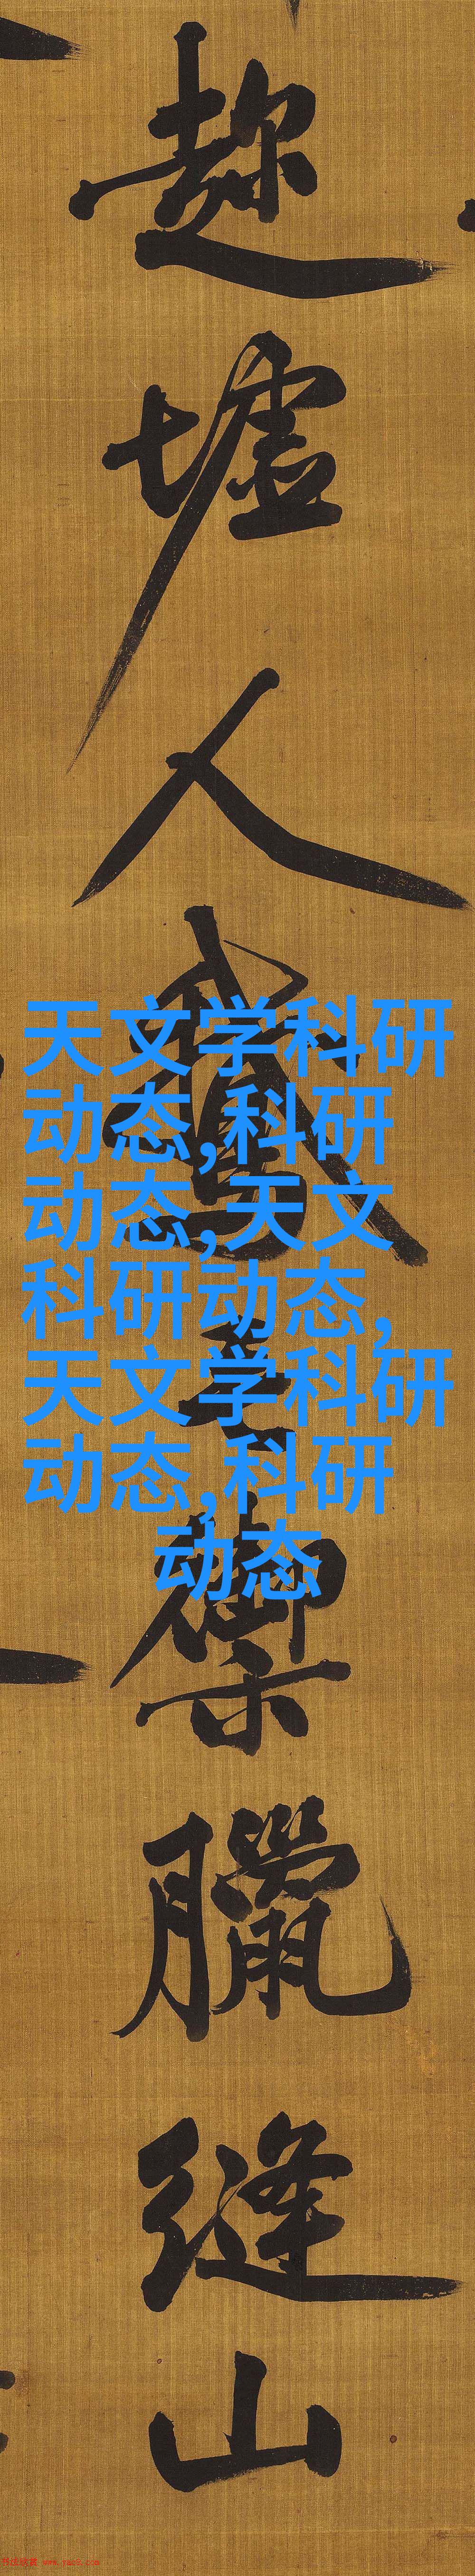 趂墟人鵞毛禦臘縫山
天文学科研
动态,科研
动态,天文
科研动态,
天文学科研
动态,科研
动态